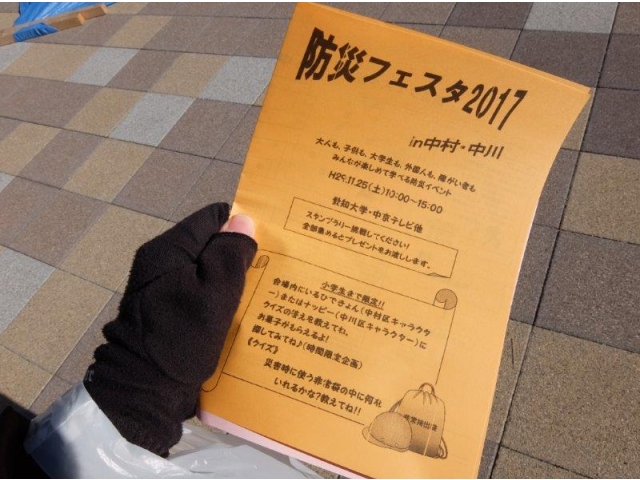 防災フェスタ2017
in中村・中川
大人も、子供も、大学生も、外国人も、障がい者も
みんなが楽しめて学べる防災イベント
H29.11.25(土)10:00~15:00
愛知大学・中京テレビ他
スタンプラリー挑戦してください!
全部集めるとプレゼントをお渡しします。
小学生まで限定!!
会場内にいるひできょん(中村区キャラクタ
ー)またはナッピー(中川区キャラクター)に
クイズの答えを教えてね。
お菓子がもらえるよ!
探してみてね♪(時間限定企画)
《クイズ》
災害時に使う非常袋の中に何を
いれるかな?教えてね!!
非常持出袋